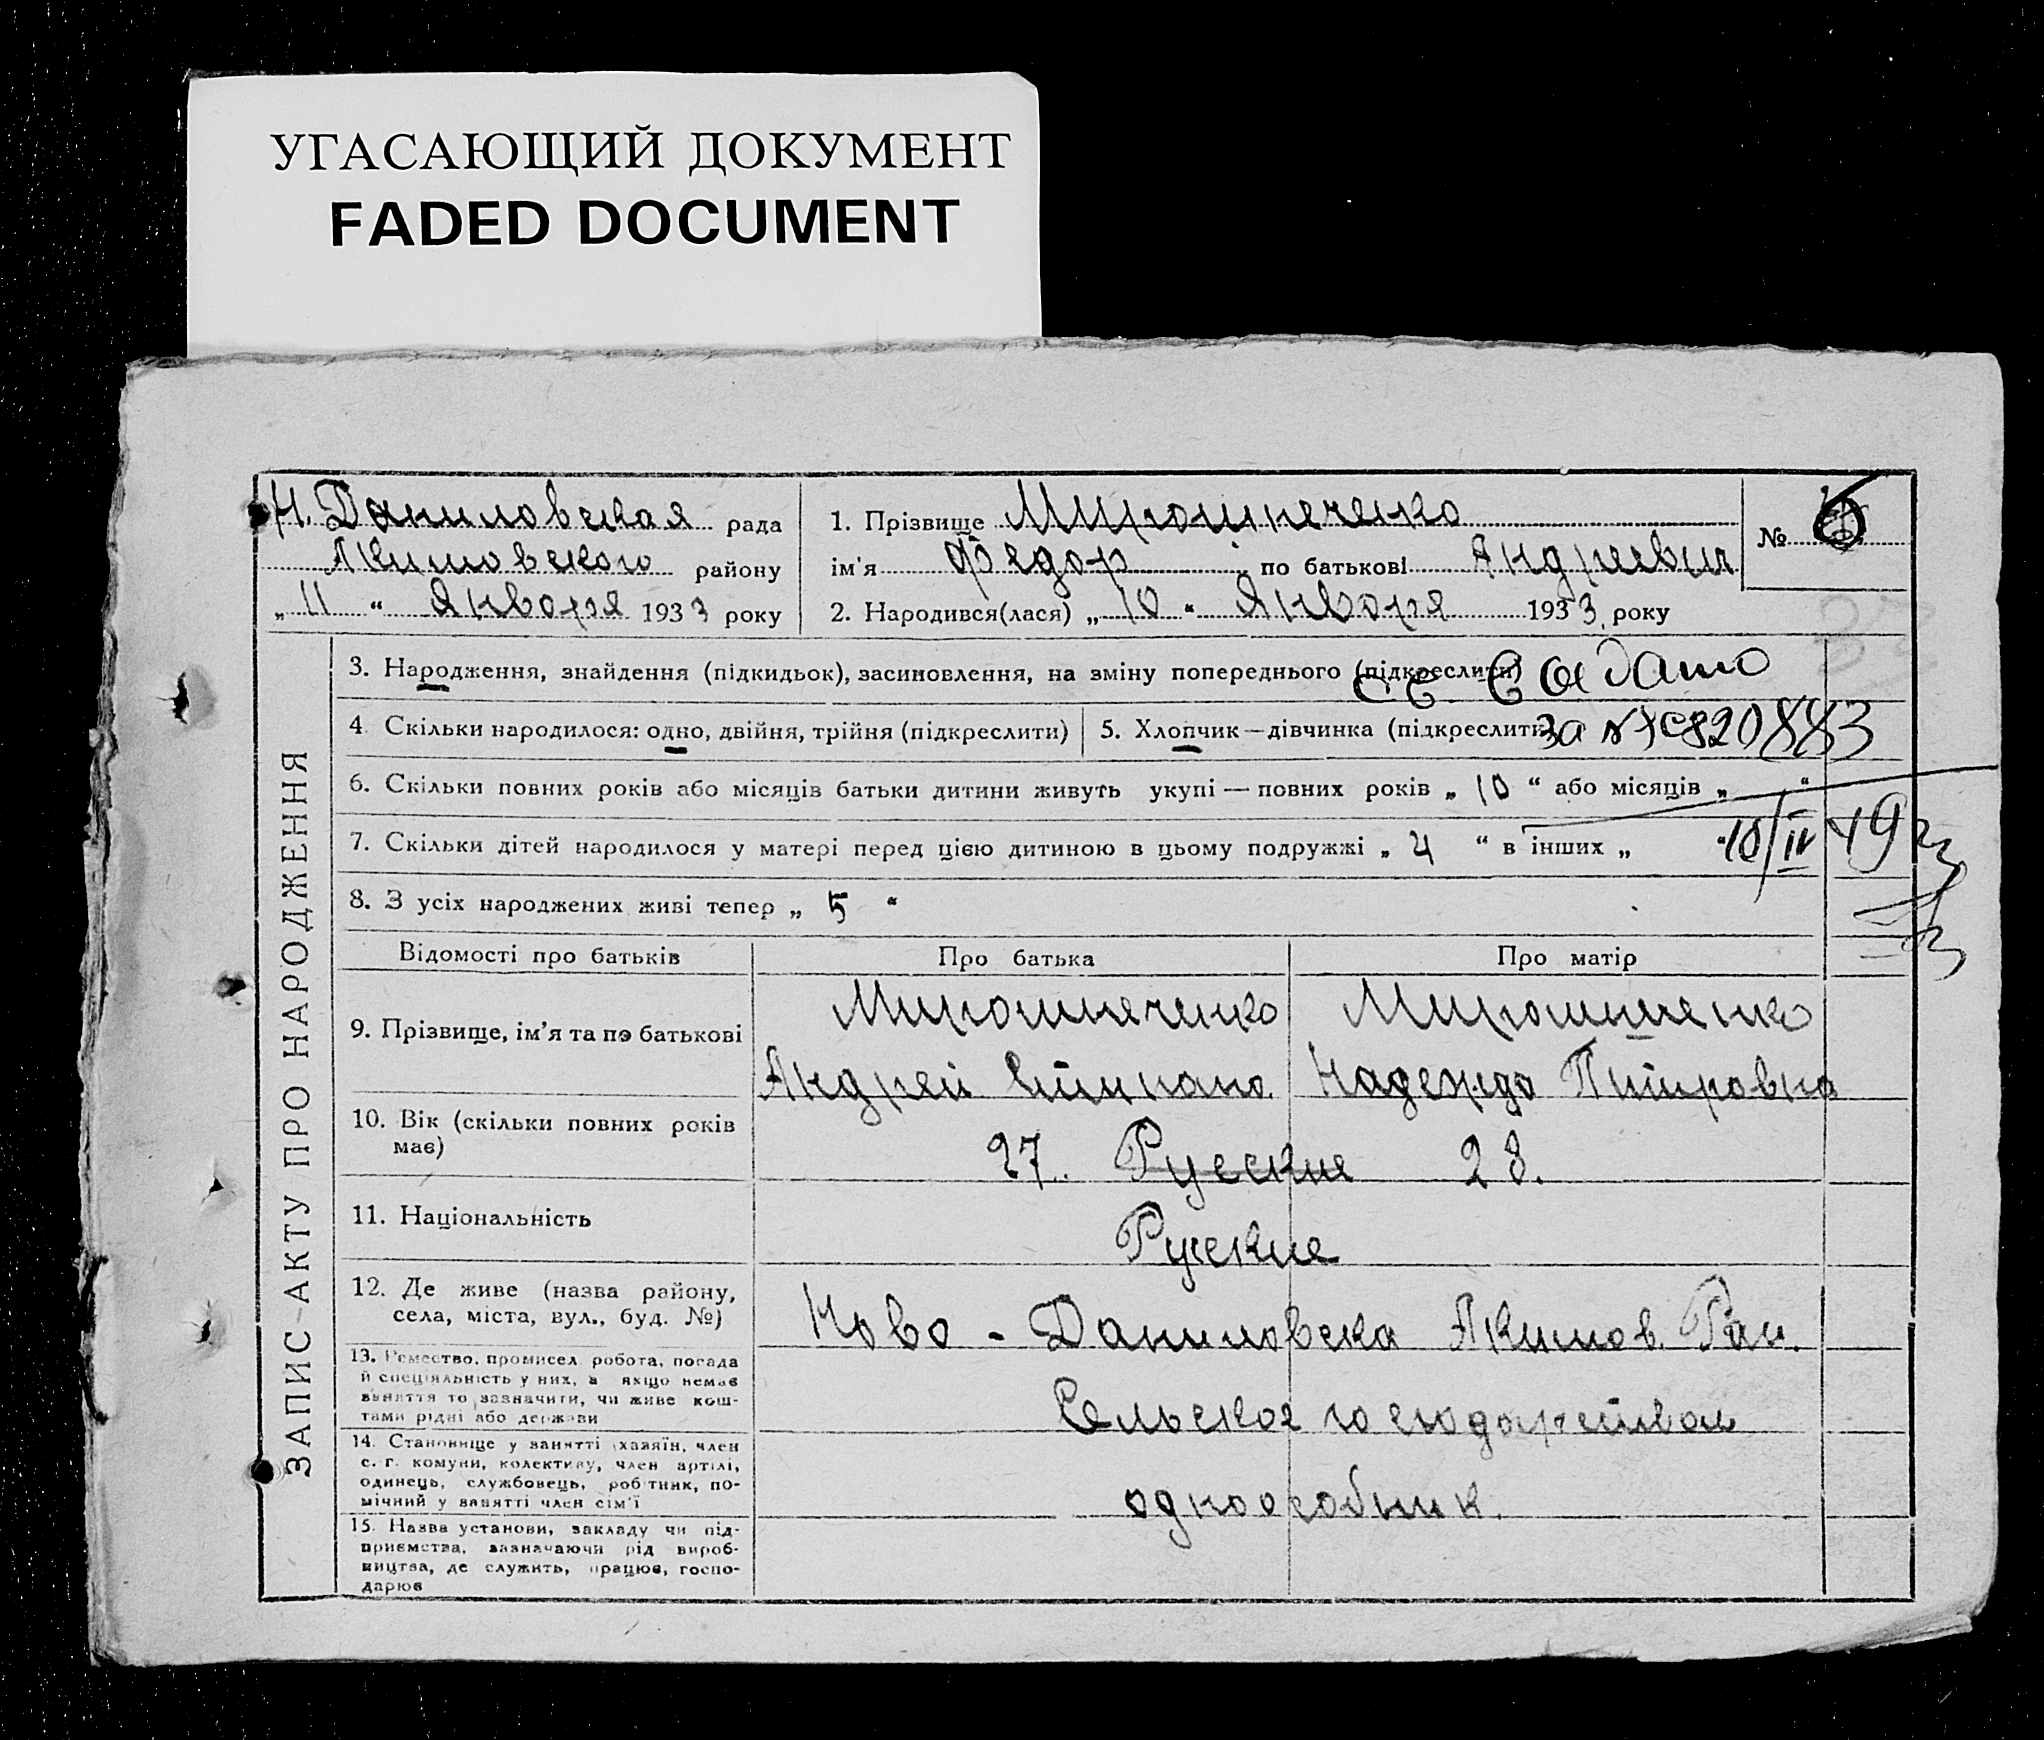 УГАСАЮЩИЙ ДОКУМЕНТ
FADED DOCUMENT
Н. Даниловская рада
Акимовского району
„ 11 “ Января 1933 року
1. Прізвище Мирошнеченко
ім'я Федор по батькові Андреевич
2. Народився(лася) „ 10 “ Января 1933, року
№ 6
ЗАПИС-АКТУ ПРО НАРОДЖЕННЯ
3. Народження, знайдення (підкидьок), засиновлення, на зміну попереднього (підкреслити)
4. Скільки народилося: одно, двійня, трійня (підкреслити)
5. Хлопчик—дівчинка (підкреслити)
за № 820883
6. Скільки повних років або місяців батьки дитини живуть укупі — повних років „ 10 “ або місяців „ “
7. Скільки дітей народилося у матері перед цією дитиною в цьому подружжі „ 4 “ в інших „
10/IV 49
8. З усіх народжених живі тепер „ 5 “
Відомості про батьків
Про батька
Про матір
9. Прізвище, ім'я та по батькові
Мирошнеченко
Андрей Степано.
Мирошниченко
Надежда Петровна
10. Вік (скільки повних років
має)
27. Русские 28.
11. Національність
Русские
12. Де живе (назва району,
села, міста, вул., буд. №)
Ново - Даниловска Акимов. Рай.
13. Ремество, промисел робота, посада
й спеціяльність у них, а якщо немає
заняття то зазначити, чи живе кош-
тами рідні або держави
Сельское
14. Становище у занятті (хазяїн, член
с. г. комуни, колективу, член артілі,
одинець, службовець, робітник, по-
мічний у занятті член сім'ї
одноособник.
15. Назва установи, закладу чи під-
приємства, зазначаючи рід вироб-
ництва, де служить, працює, госпо-
дарює